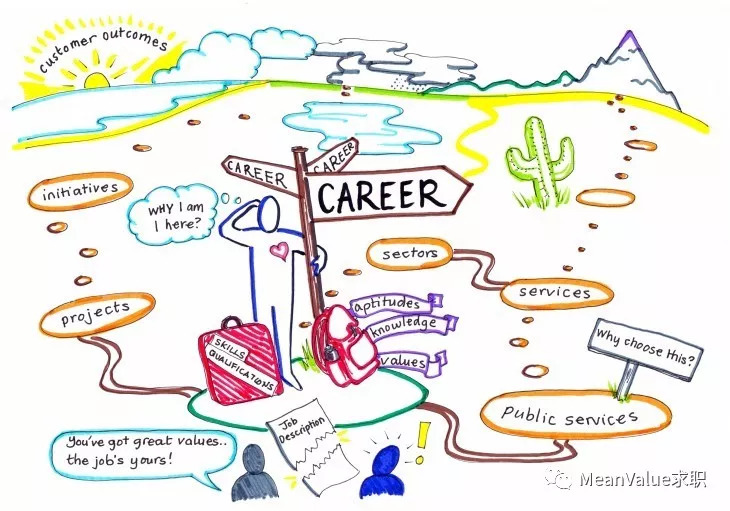 customer outcomes
CAREER
CAREER
CAREER
initiatives
WHY I am
I here?
sectors
services
projects
aptitudes
knowledge
values
SKILLS
QUALIFICATIONS
Why choose this?
Public services
Job
Description
You've got great values..
the job's yours!
MeanValue求职